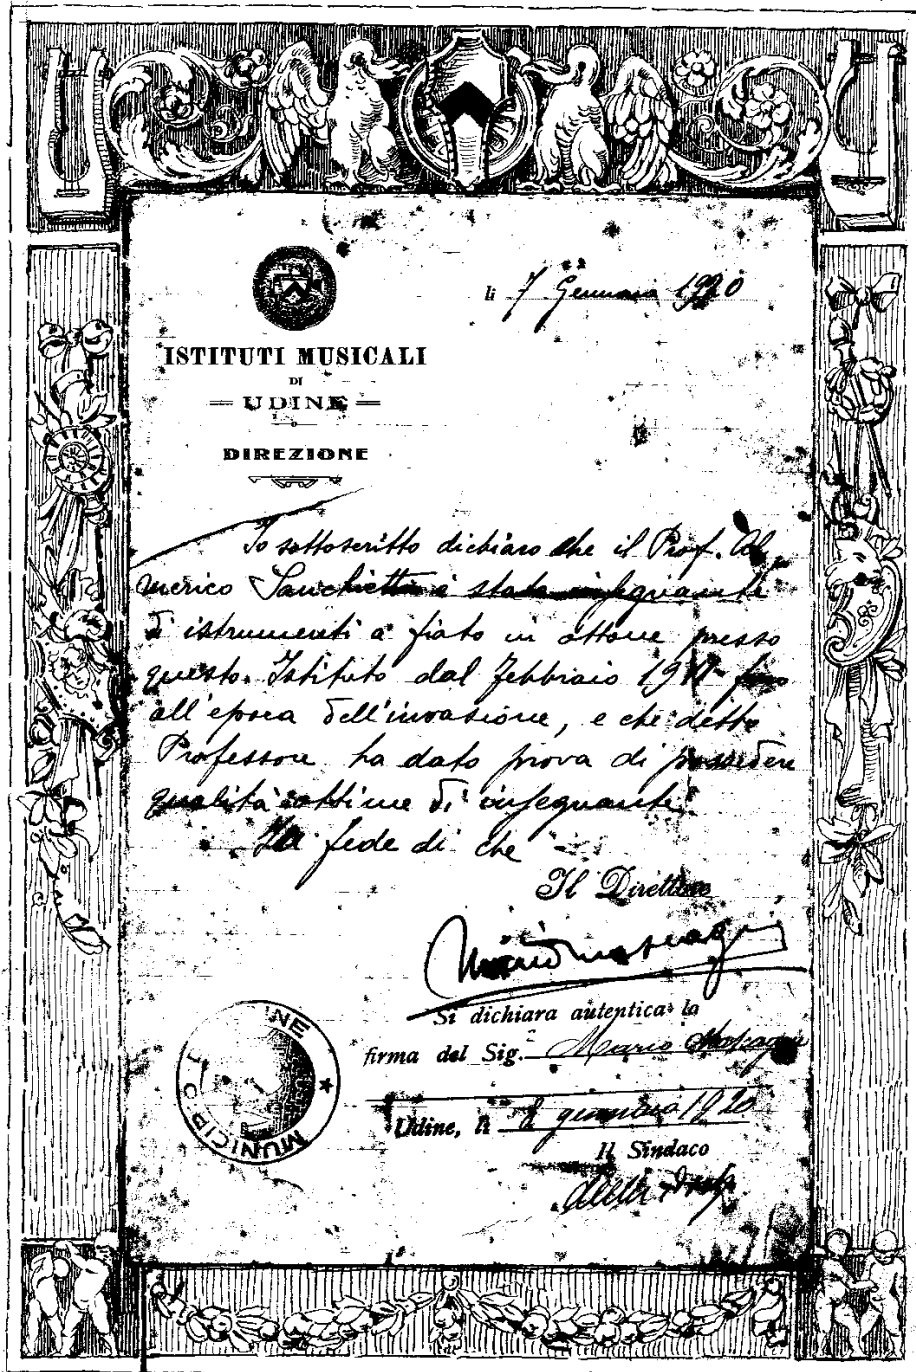 li 7 Gennaio 1920
ISTITUTI MUSICALI
DI
UDINE
DIREZIONE
Io sottoscritto dichiaro che il Prof. Al
merico Zanchetti è stato insegnante
di istrumenti a fiato in ottone presso
questo Istituto dal febbraio 1911 fino
all'epoca dell'invasione, e che detto
Professore ha dato prova di possedere
qualità ottime di insegnante.
In fede di che
Il Direttore
Mario Mascagni
Si dichiara autentica la
firma del Sig. Mario Mascagni
Udine, li gennaio 1920
Il Sindaco
MUNICIP